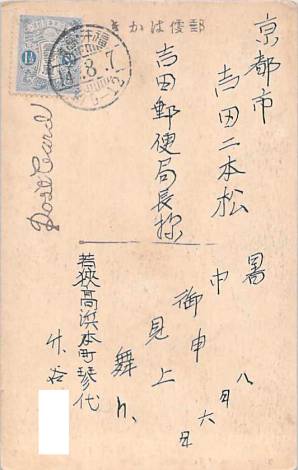 郵便はかき
1½
14.8.7
Post Card
京都市
吉田二本松
吉田郵便局長様
暑中御見舞
申上
八月六日
若狭高浜本町